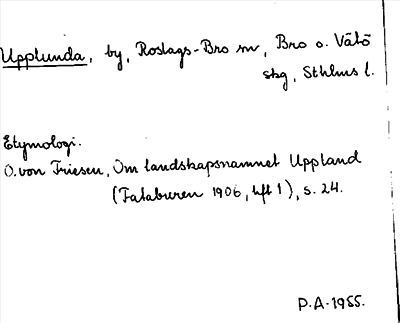 Upplunda, by, Roslags-Bro sn, Bro o. Vätö
skg, Sthlms l.
Etymologi.
O. von Friesen, Om landskapsnamnet Uppland
(Fataburen 1906, hft 1), s. 24.
P.A. 1955.